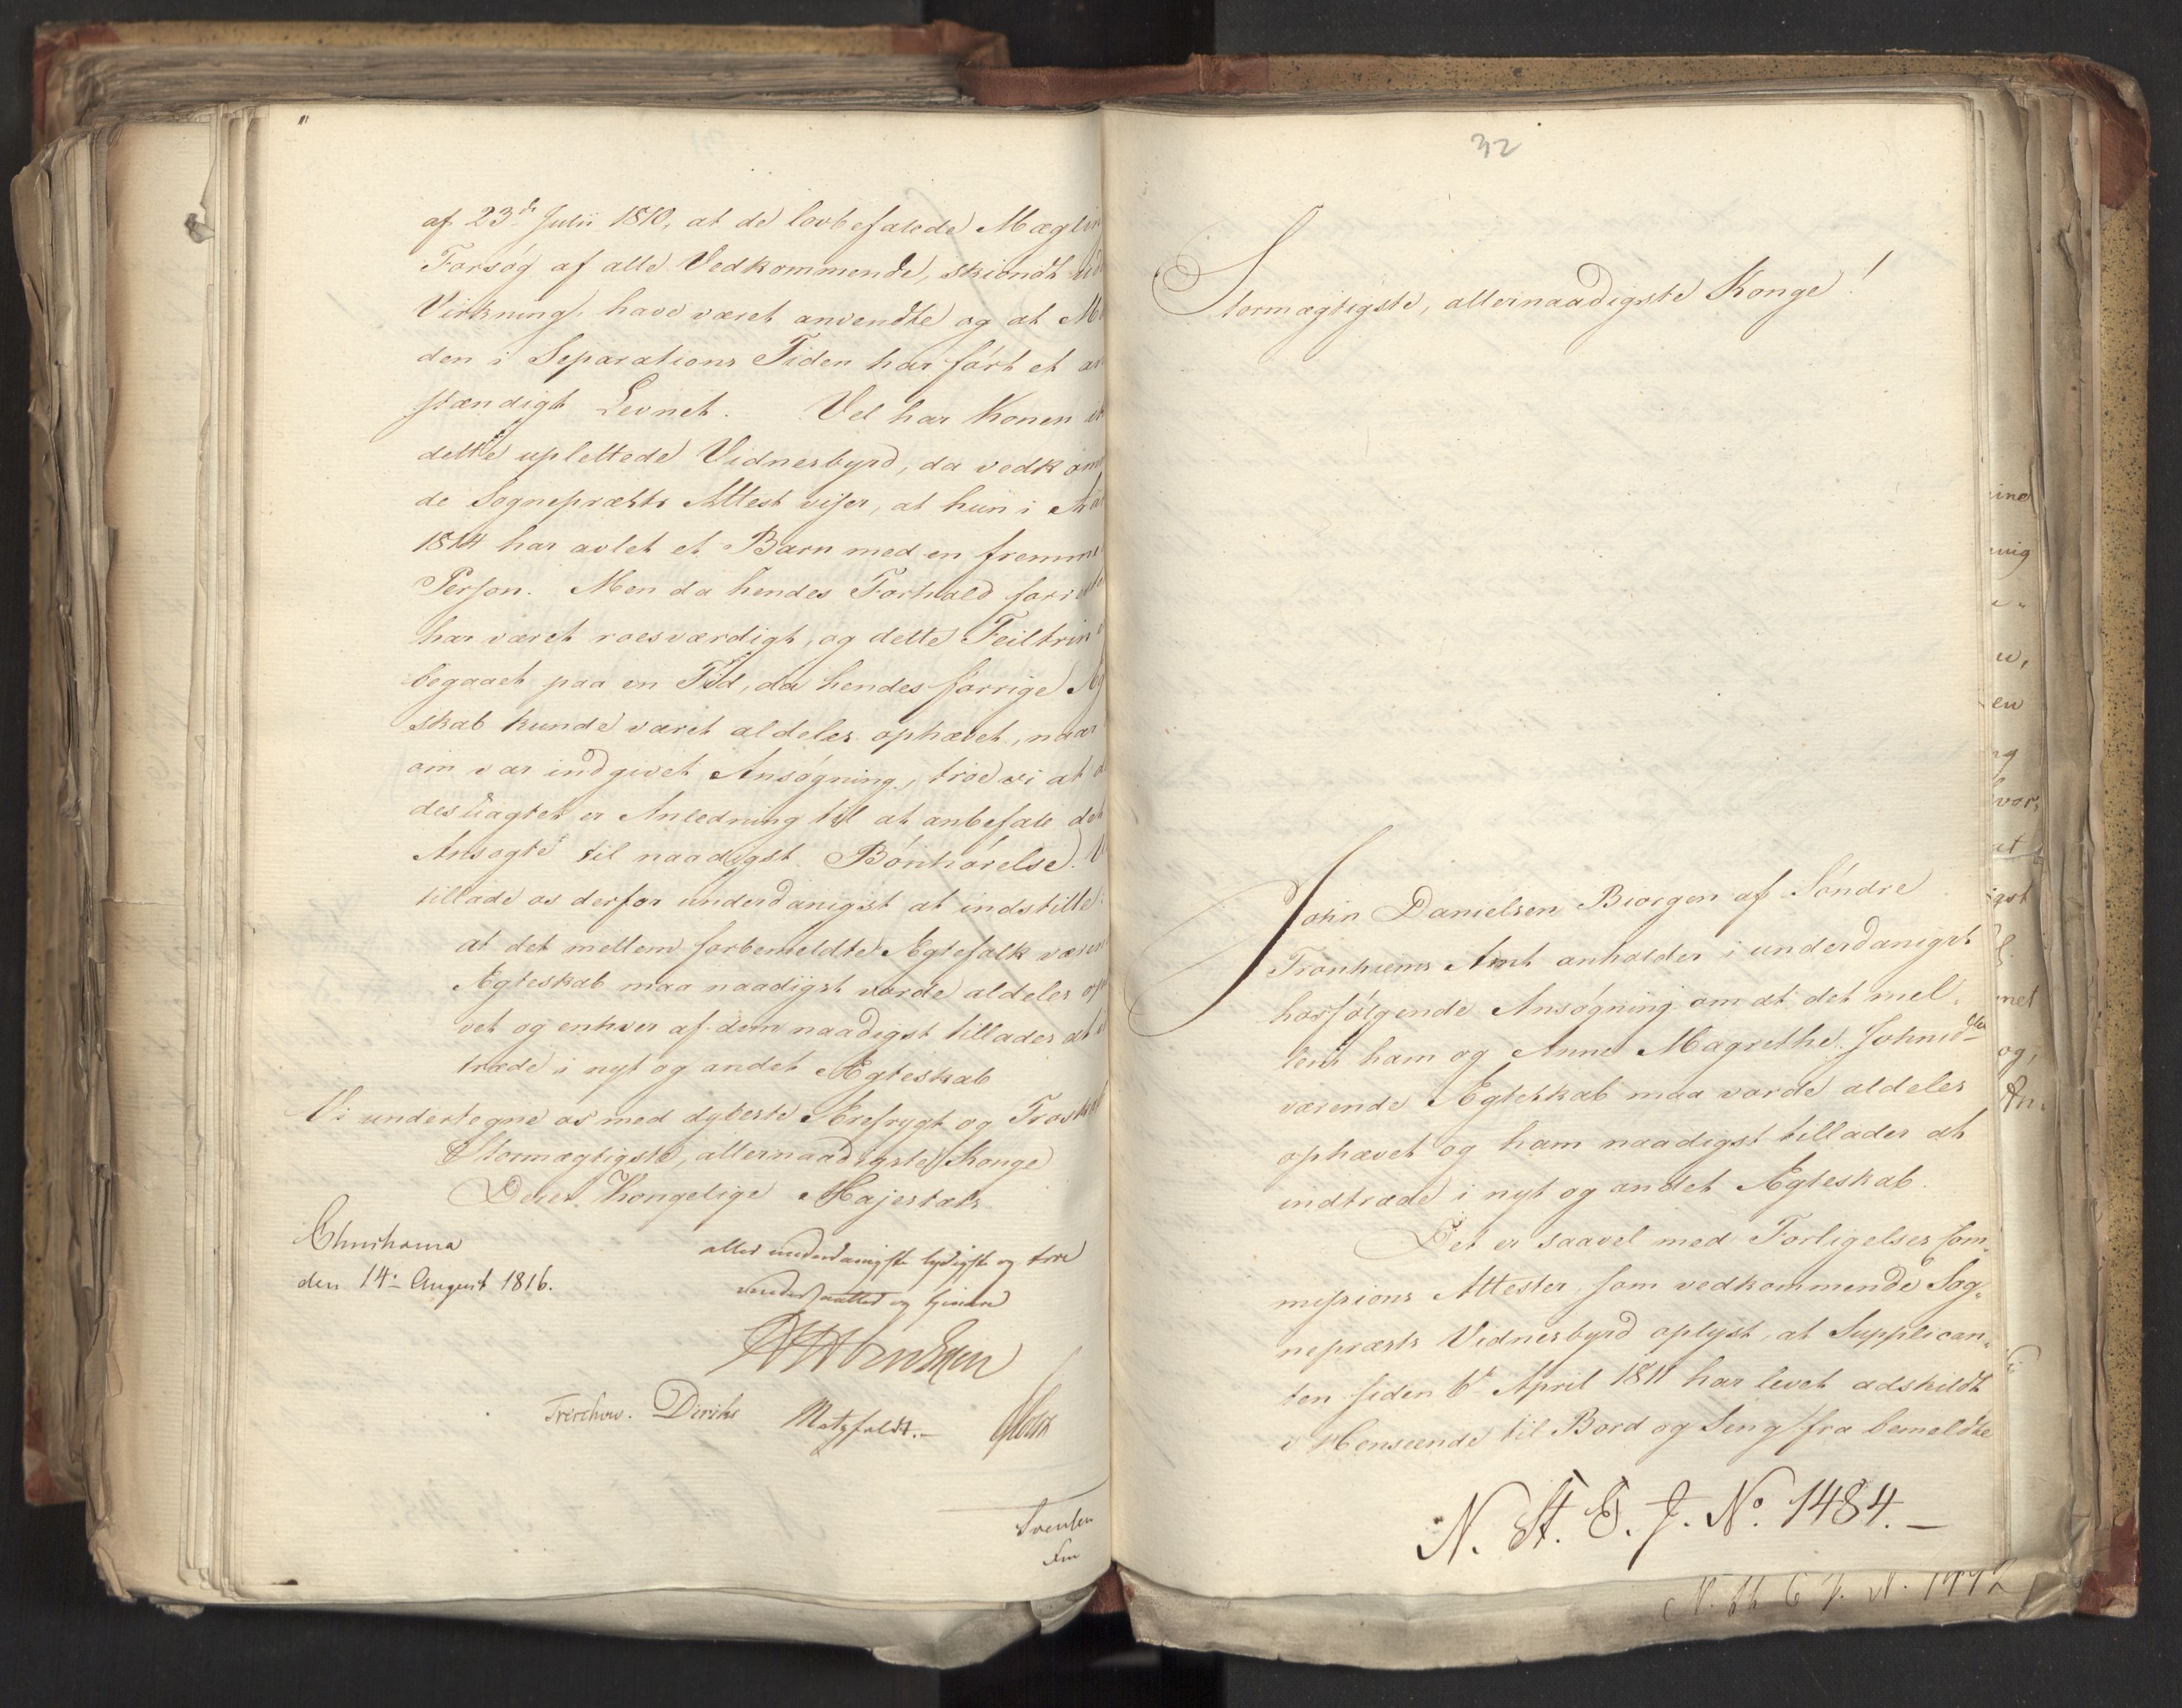 af 23de Julii 1810, at de lovbefalede Mæglin
Forsøg af alle Vedkommende, skiøndt ud
Virkning, have været anvendte og at M
den i Separations Tiden har ført et an
stændigt Levnet. Vel har Konen ik
dette uplettede Vidnesbyrd, da vedkom
de Sognepræsts Attest viser, at hun i Aar
1814 har avlet et Barn med en fremme
Person. Men da hendes Forhold forre
har været roesværdigt, og dette Feiltrin
begaaet paa en Tid, da hendes forrige Æg
skab kunde været aldeles ophævet, naar
om var indgivet Ansøgning, troe vi at d
desuagtet er Anledning til at anbefale det
Ansøgte til naadigst Bønhørelse. V
tillade os derfor underdanigst at indstille:
at det mellem forbemeldte Ægtefolk væren
Ægteskab maa naadigst vorde aldeles op
vet og enhver af dem naadigst tillades at i
træde i nyt og andet Ægteskab
Vi undertegne os med dybeste Ærefrygt og Troskab
Stormægtigste, allernaadigste Konge
Deres Kongelige Majestæts
Christiania
den 14de August 1816.
allerunderdanigste lydigste og troe
undersaatter og tjenere
Treschow. Diriks Motzfeldt.
32
Stormægtigste, allernaadigste Konge!
John Danielsen Biørgen af Søndre
Tronhiems Amt anholder i underdanigst
hosfølgende Ansøgning om at det mel-
lem ham og Anne Magrethe Johnsdtr
værende Ægteskab maa vorde aldeles
ophævet og ham naadigst tillades at
indtræde i nyt og andet Ægteskab.
Det er saavel med Forligelses Com-
missions Attester, som vedkommende Sog-
nepræsts Vidnesbyrd oplyst, at Supplican-
ten siden 6te April 1811 har levet adskildt
i Henseende til Bord og Seng fra bemeldte
N. St. E. J. No. 1484.